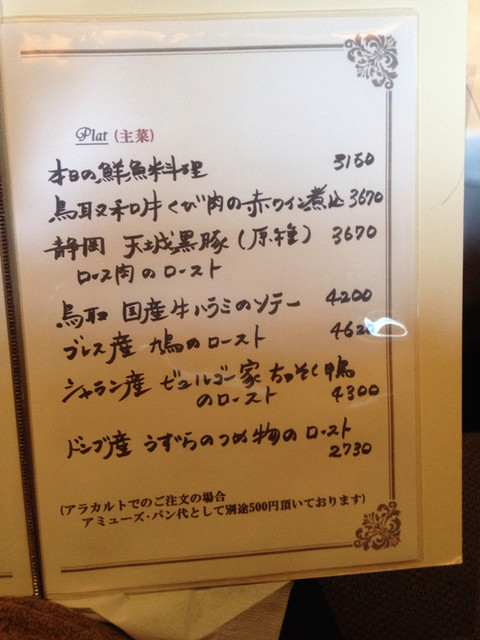 Plat (主菜)
本日の鮮魚料理 3150
鳥取和牛くび肉の赤ワイン煮込 3670
静岡 天城黒豚(原種) 3670
ロース肉のロースト
鳥取 国産牛ハラミのソテー 4200
ブレス産 鳩のロースト
シャラン産 ビュルゴー家 ちっそく鴨
のロースト 4300
ドンブ産 うずらのつめ物のロースト
2730
(アラカルトでのご注文の場合
アミューズ・パン代として別途500円頂いております)